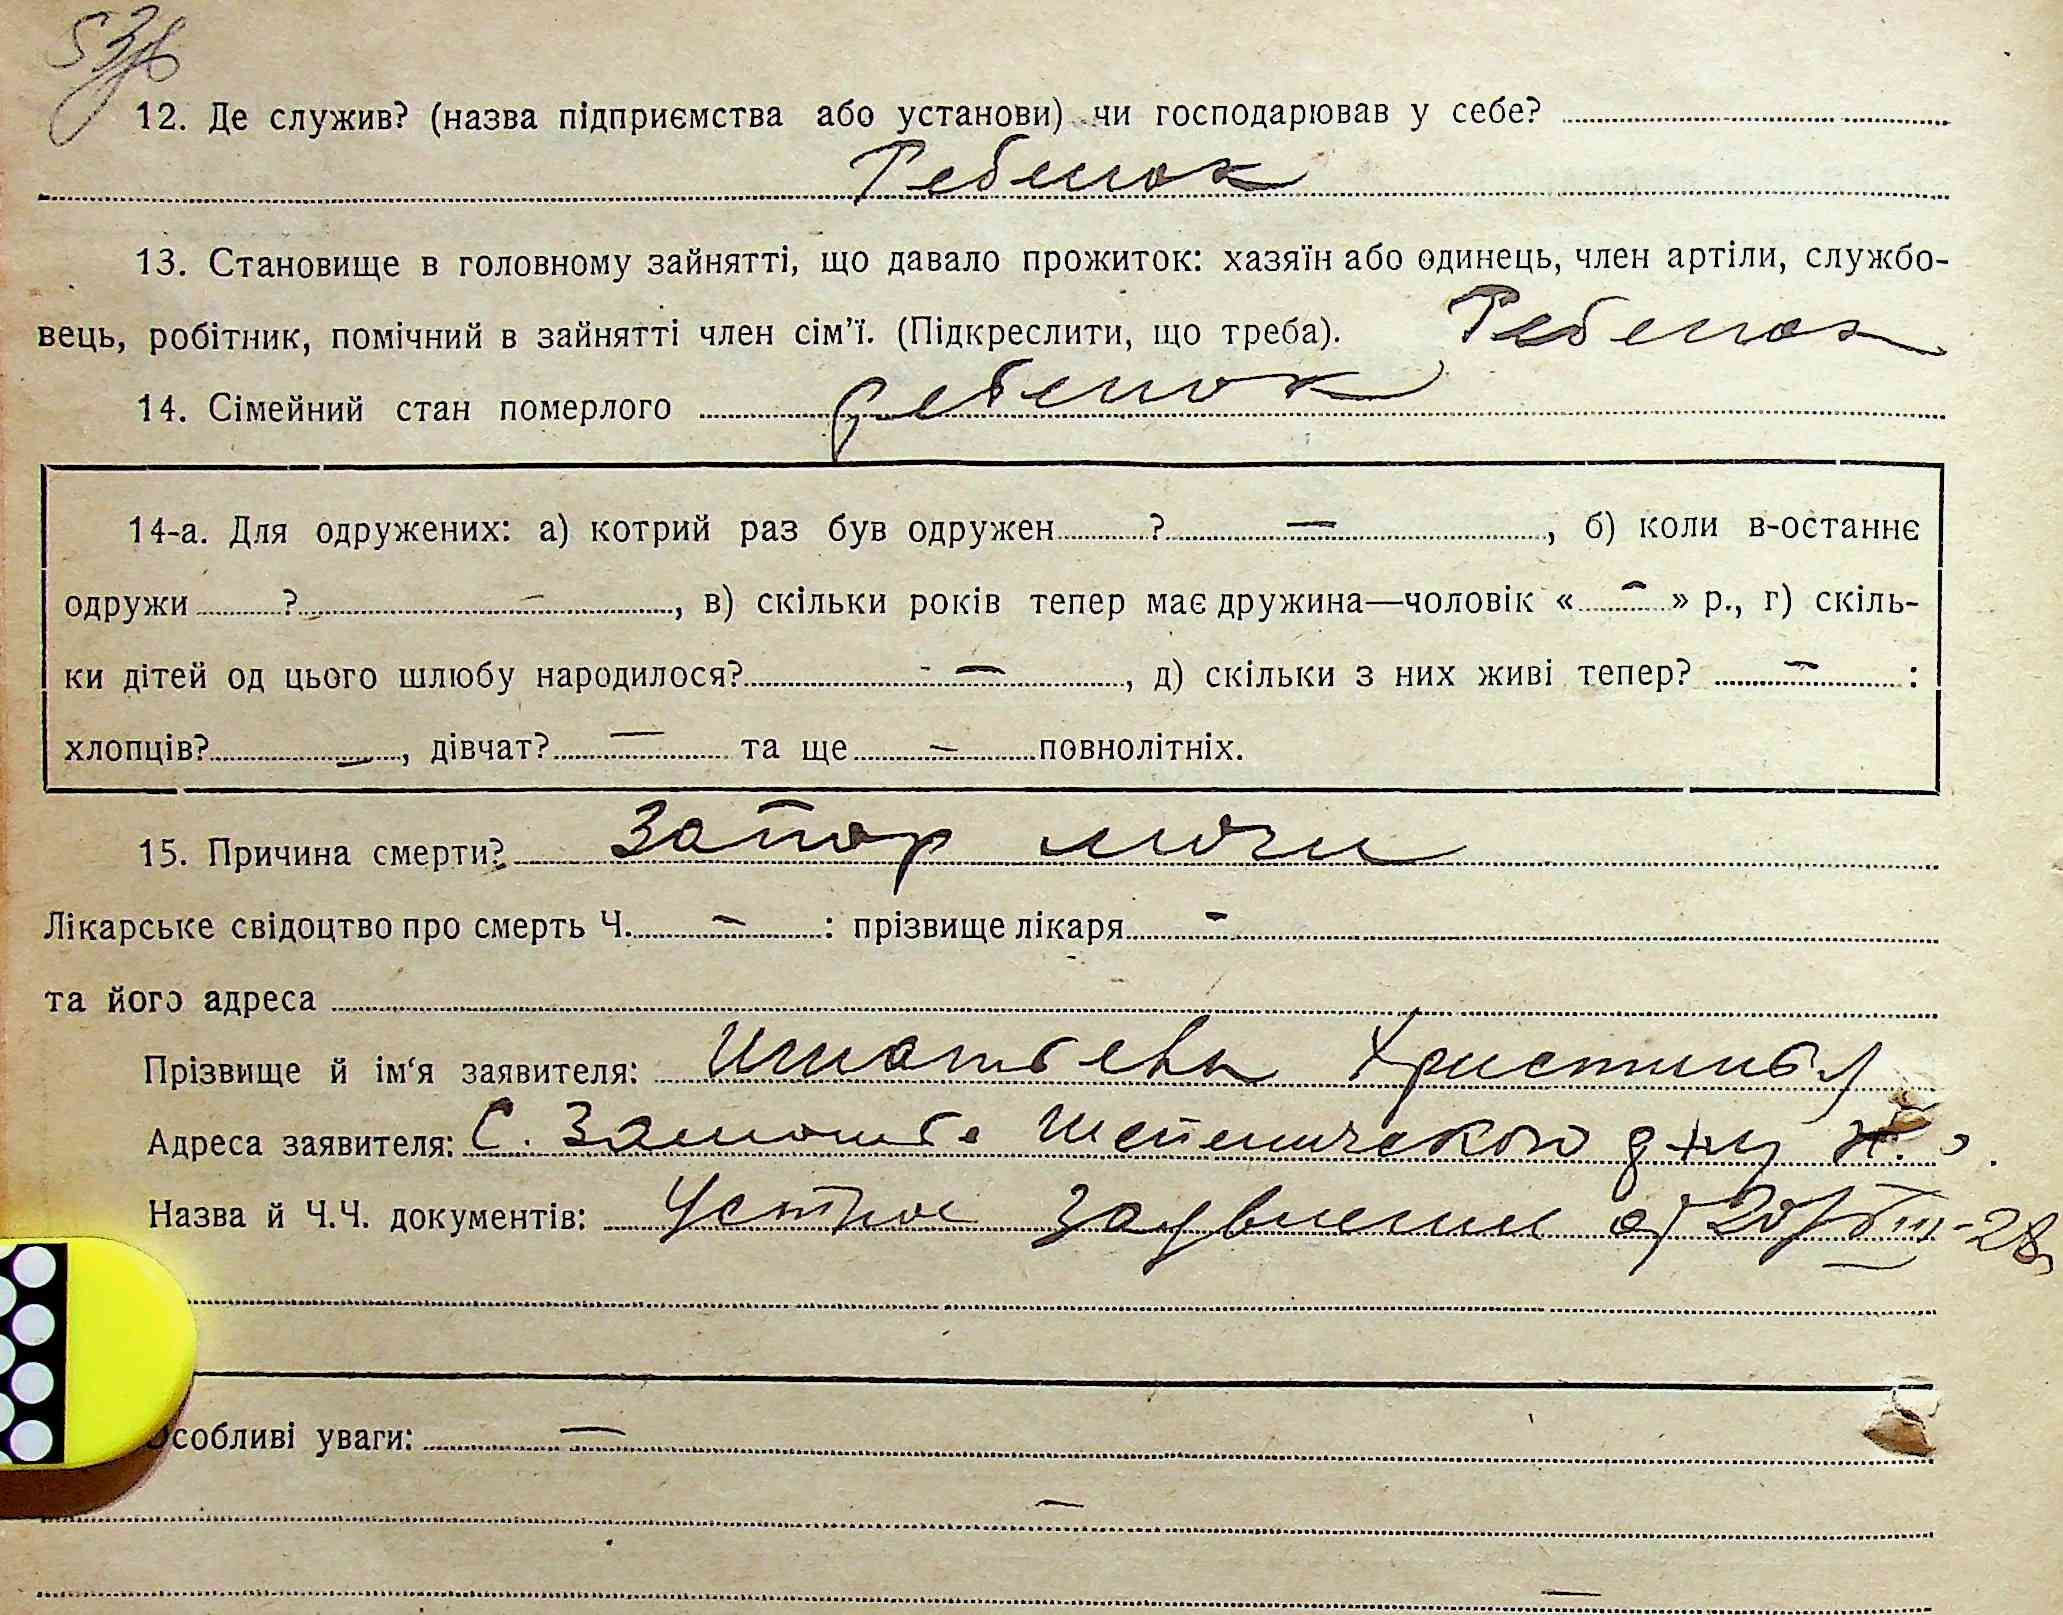 12. Де служив? (назва підприємства або установи) чи господарював у себе?
Ребенок
13. Становище в головному зайнятті, що давало прожиток: хазяїн або одинець, член артіли, службо-
вець, робітник, помічний в зайнятті член сім'ї. (Підкреслити, що треба). Ребенок
14. Сімейний стан померлого ребенок
14-а. Для одружених: а) котрий раз був одружен ? — , б) коли в-останнє
одружи ? — , в) скільки років тепер має дружина—чоловік « — » р., г) скіль-
ки дітей од цього шлюбу народилося? — , д) скільки з них живі тепер? — :
хлопців? — , дівчат? — та ще — повнолітніх.
15. Причина смерти? Запор мочи
Лікарське свідоцтво про смерть Ч. — : прізвище лікаря —
та його адреса
Прізвище й ім'я заявителя:
Адреса заявителя: С.
Назва й Ч.Ч. документів: Устное от 20/VIII-28
Особливі уваги: —
—
—